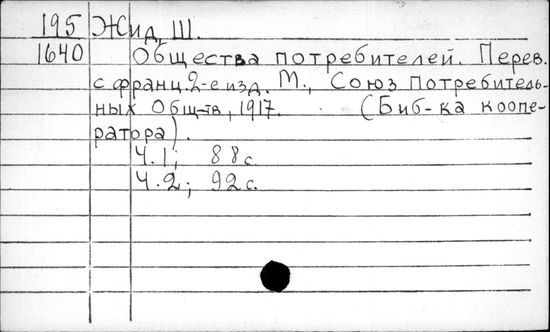 195 Жид, Ш.
1640 Общества потребителей. Перев.
с франц. 2-е изд. М., Союз Потребитель-
ных Общ-тв, 1917. (Биб-ка коопе-
ратора).
Ч.1; 88с.
Ч.2; 92с.